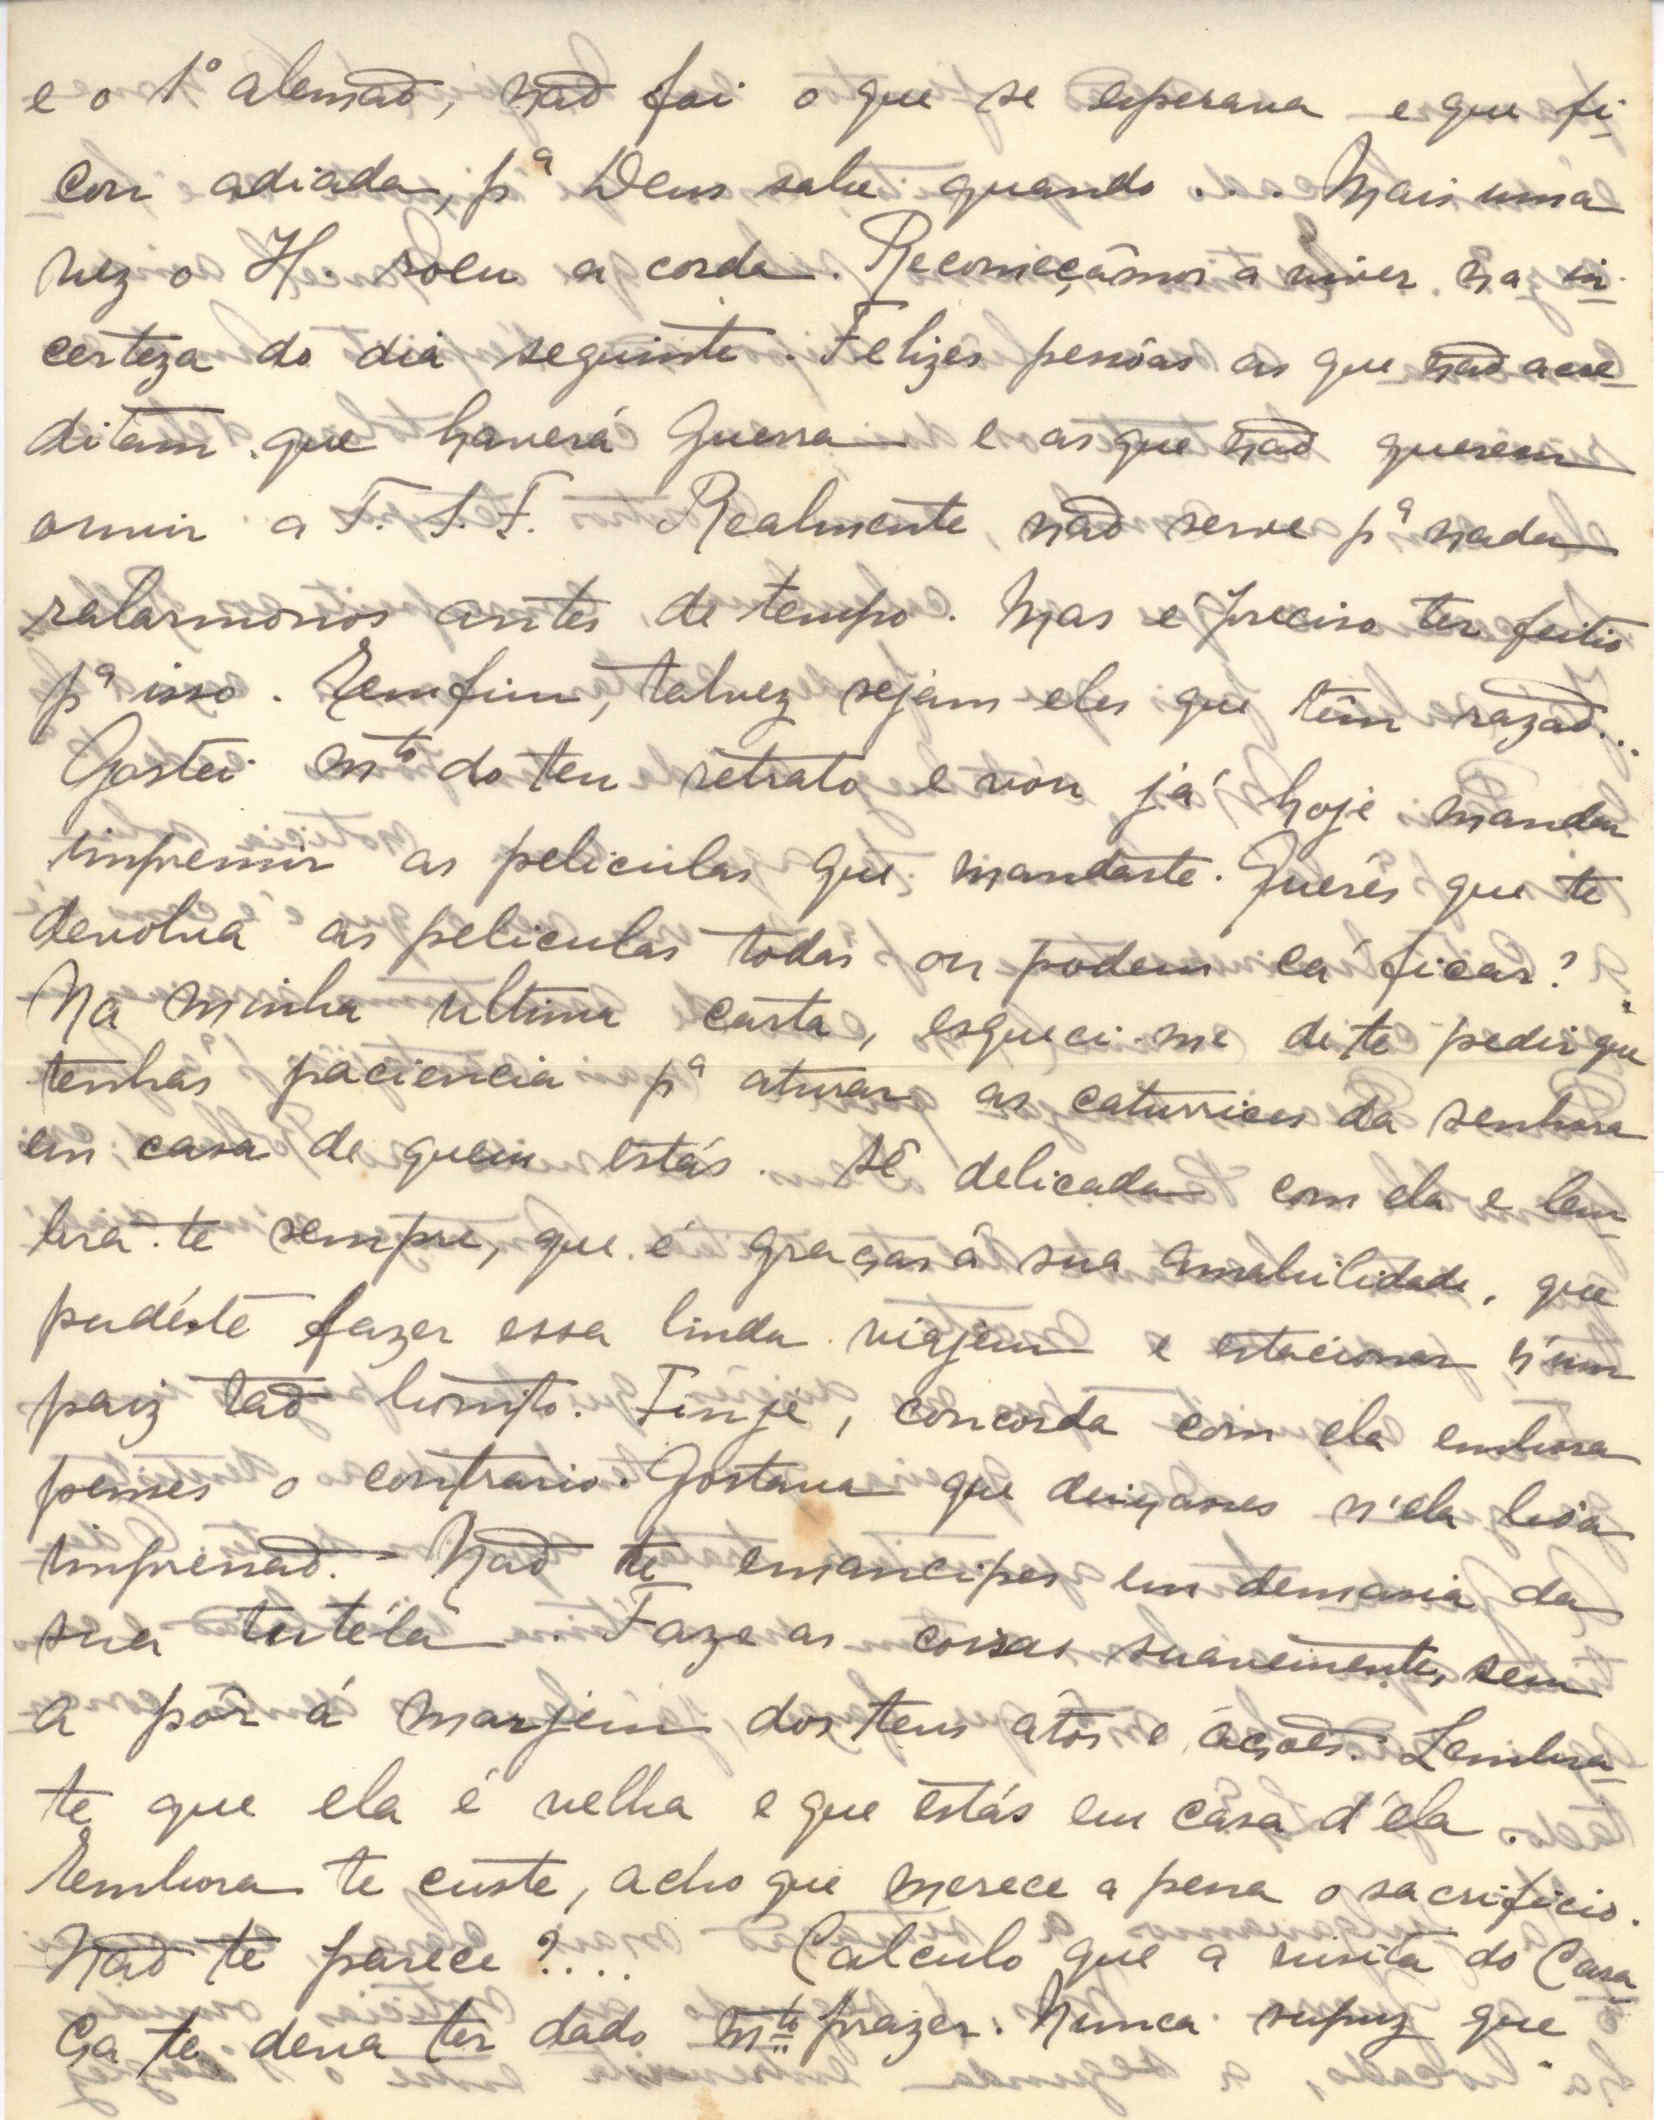 e o 1º alemaõ, naõ foi o que se esperava e que fi-
cou adiada, pª Deus sabe quando ... Mais uma
vez o H. roeu a corda. Recomeçâmos a viver na in-
certeza do dia seguinte. Felizes pessôas as que naõ acre-
ditam que haverá Guerra e as que naõ querem
ouvir a T. S. F. Realmente, naõ serve pª nada
ralarmonos antes de tempo. Mas é preciso ter feitio
pª isso. Emfim, talvez sejam eles que têm razaõ...
Gostei mto do teu retrato e vou já hoje mandar
imprimir as peliculas que mandaste. Querês que te
devolva as peliculas todas ou podem cá ficar?
Na minha ultima carta, esqueci-me de te pedir que
tenhas paciencia pª aturar as caturrices da senhora
em casa de quem estás. Sê delicada com ela e lem-
bra-te sempre, que é graças á sua amabilidade, que
pudéste fazer essa linda viajem e estacionar n'um
paiz taõ bonito. Finje, concorda com ela embora
penses o contrario. Gostava que deixasses n'ela bôa
impressaõ. Naõ te emancipes em demasia da
sua tutéla. Faze as coisas suavemente, sem
a pôr á marjem dos teus átos e áções. Lembra-
te que ela é velha e que estás em casa d'ela.
Embora te custe, acho que merece a pena o sacrificio.
Naõ te parece?.... Calculo que a visita do Cara
ça te deva ter dado mto prazer. Nunca supuz que